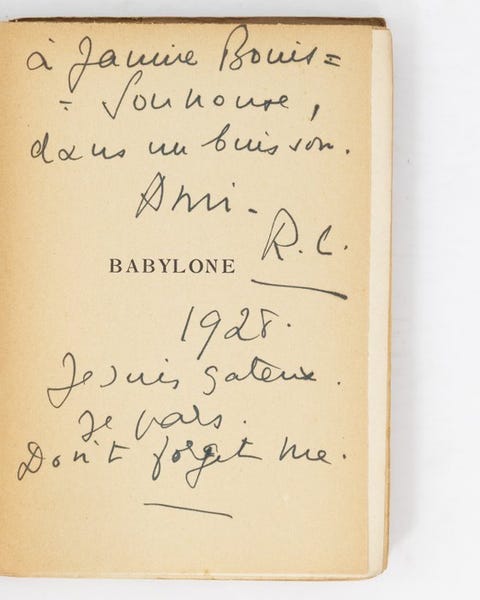 à Janine Bouis=
= sounouse,
dans un buisson.
Ami.
R. C.
BABYLONE
1928.
Je suis gateux.
Je pars.
Don't forget me.